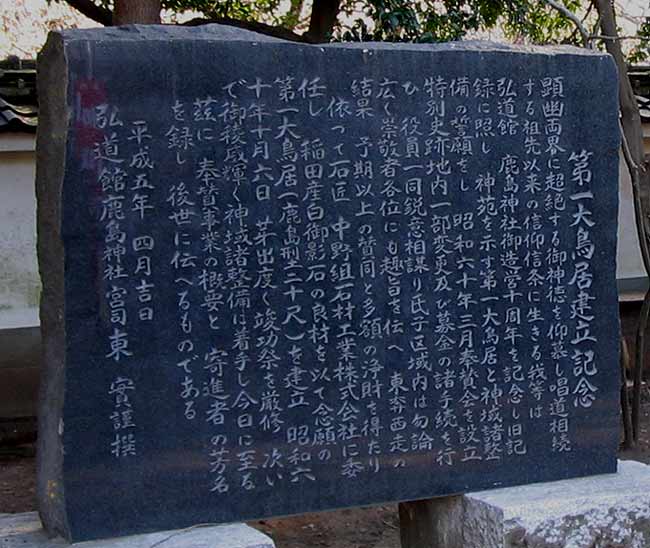 第一大鳥居建立記念
顕幽両界に超絶する御神徳を仰慕し唱道相続
する祖先以来の信仰信条に生きる我等は
弘道館 鹿島神社御造営十周年を記念し旧記
録に照し 神苑を示す第一大鳥居と神域諸整
備の誓願をし 昭和六十年三月奉賛会を設立
特別史跡地内一部変更及び募金の諸手続を行
ひ 役員一同鋭意相謀り氏子区域内は勿論
広く崇敬者各位にも趣旨を伝へ 東奔西走の
結果 予期以上の賛同と多額の浄財を得たり
依つて石匠 中野組石材工業株式会社に委
任し 稲田産白御影石の良材を以て念願の
第一大鳥居(鹿島型二十尺)を建立 昭和六
十年十月六日 芽出度く竣功祭を厳修 次い
で御稜威輝く神域諸整備に着手し今日に至る
茲に 奉賛事業の概要と 寄進者の芳名
を録し 後世に伝へるものである
平成五年 四月吉日
弘道館鹿島神社 宮司 東 實 謹撰